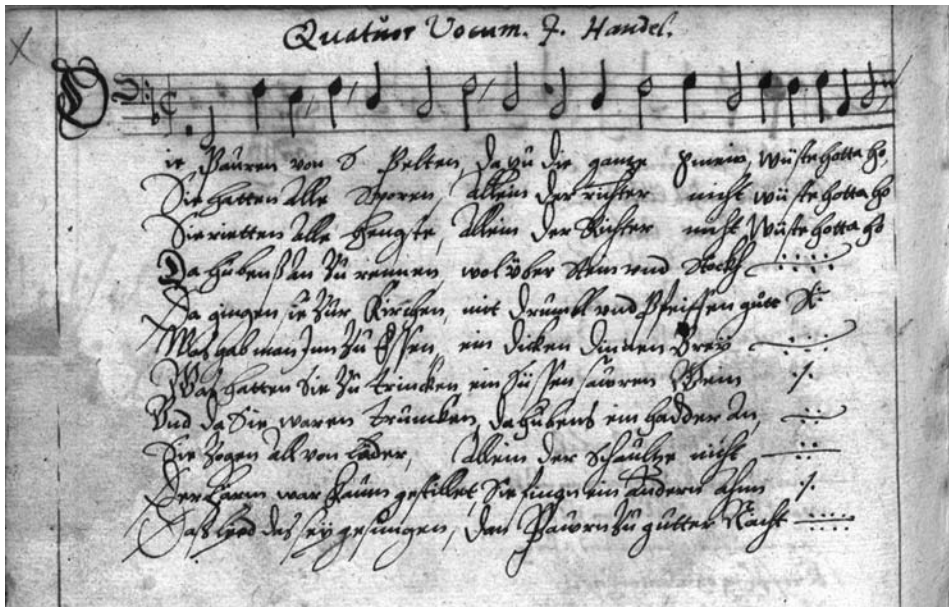 Quatuor Vocum. J. Handel.
Die Pauren von S Pelten, da zu die ganze Gmein, wüste hotta ho,
Sie hatten alle Sporen, allein der richter nicht wüste hotta ho
Sie rietten alle hengste, allein der Richter nicht Wüste hotta ho
Da hubens an zu rennen, wol über Stein vnd Stockh
Da gingen sie zur Kirchen, mit Trumel vnd Pfeiffen gutt
Was gab man Inn zu Essen, ein dicken dinnen Brey
Was hatten Sie zu trincken ein süssen sawren Wein
Vnd da Sie waren truncken, da hubens ein hadder an,
Sie zogen all von Läder, Allein der Schaultze nicht
Der Lärm war kaum gestillet, Sie fingn ein andern ahnn
Das Lied das sey gesungen, den Pawrn zu gutter Nacht